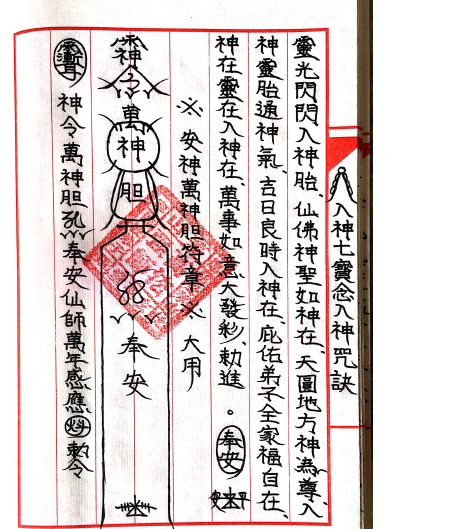 入神七寶念入神咒訣
靈光閃閃入神胎、仙佛神聖如神在、天圓地方神為尊、入
神靈胎通神氣、吉日良時入神在、庇佑弟子全家福自在、
神在靈在入神在、萬事如意大發彩、勅進。奉安
※安神萬神胆符章※大用
神令萬神胆 奉安
神令萬神胆 奉安仙師萬年感應 勅令